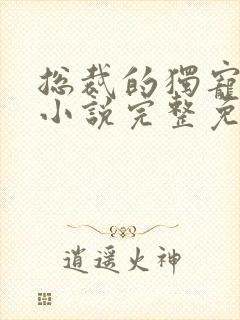 总裁的獨寵
小說完整免
逍遥火神